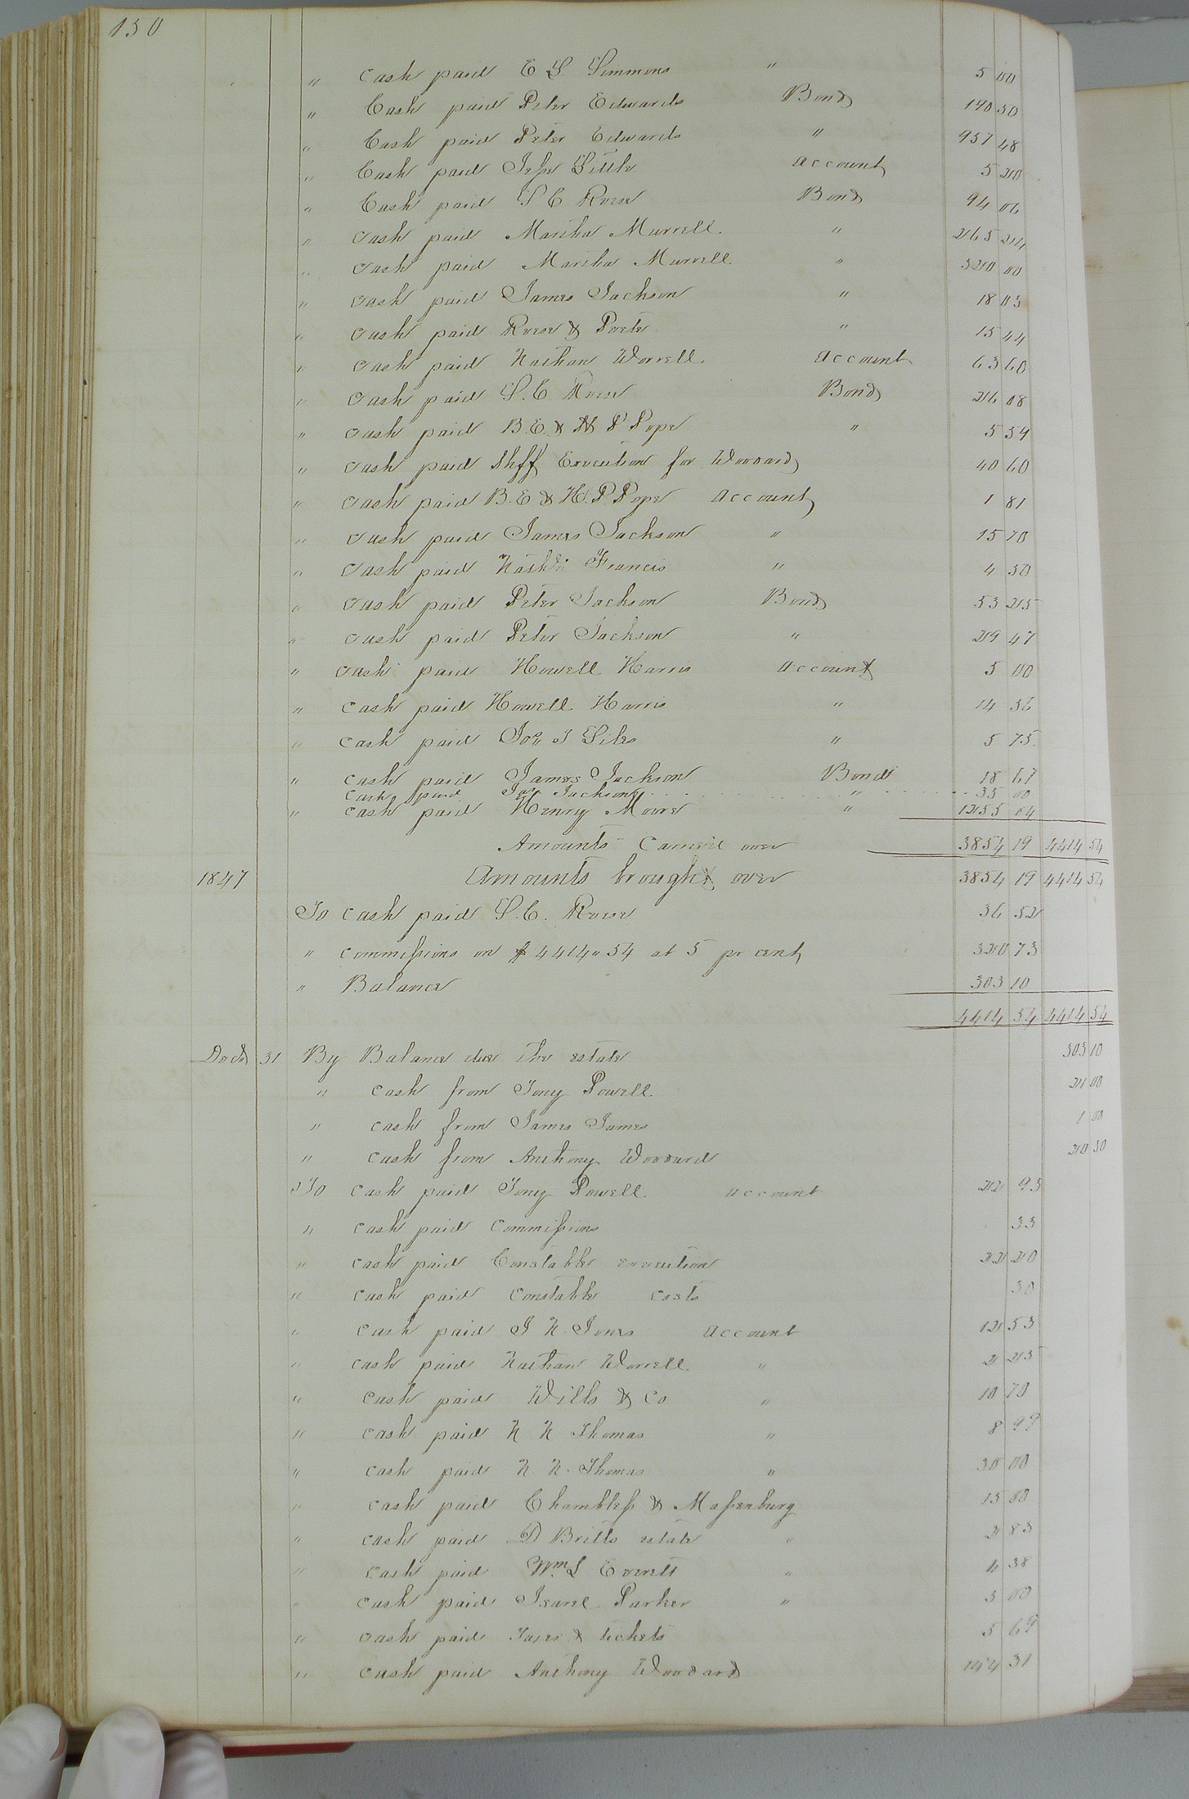 150
" Cash paid E S Simmons " 5 00
" Cash paid Peter Edwards Bond 170 50
" Cash paid Peter Edwards " 957 48
" Cash paid Jesse Little account 5 20
" Cash paid S C Rosser Bond 94 06
" Cash paid Martha Murrell " 265 24
" Cash paid Martha Murrell " 320 00
" Cash paid James Jackson " 18 03
" Cash paid " 15 44
" Cash paid Nathan Worrell account 63 60
" Cash paid S. C. Rosser Bond 26 08
" Cash paid B E & H P Pope " 5 59
" Cash paid Shff Execution for Woodard 40 60
" Cash paid B. E & H. P. Pope account 1 81
" Cash paid James Jackson " 15 70
" Cash paid Francis " 4 50
" Cash paid Peter Jackson Bond 53 25
" Cash paid Peter Jackson " 29 47
" Cash paid Howell Harris account 5 00
" Cash paid Howell Harris " 14 56
" Cash paid " 5 75
" Cash paid James Jackson Bond 18 67
Cash paid Jas Jackson " 35 00
" Cash paid Henry Moore " 1255 64
Amounts Carried over 3854 19 4414 54
1847 Amounts brought over 3854 19 4414 54
To Cash paid S. C. Rosser 36 52
" Commissions on $4414"54 at 5 pr cent 220 73
" Balance 303 10
4414 54 4414 54
Dec 31 By Balance due the estate 303 10
" Cash from Tony Powell. 21 00
" Cash from James James 1 00
" Cash from Anthony Woodard 20 50
To Cash paid Tony Powell. account 22 93
" Cash paid Commissions 33
" Cash paid Constable execution 22 20
" Cash paid Constable Costs 30
" Cash paid J N Jones account 12 53
" Cash paid Nathan Worrell " 2 25
" Cash paid Wills & Co " 10 70
" Cash paid N N Thomas " 8 99
" Cash paid N N. Thomas " 30 00
" Cash paid Chambless & Massenburg 15 00
" Cash paid D Britts estate " 2 83
" Cash paid Wm S Everett " 4 38
" Cash paid Isarel Parker " 3 00
" Cash paid Taxes & tickets 5 69
" Cash paid Anthony Woodard 144 31